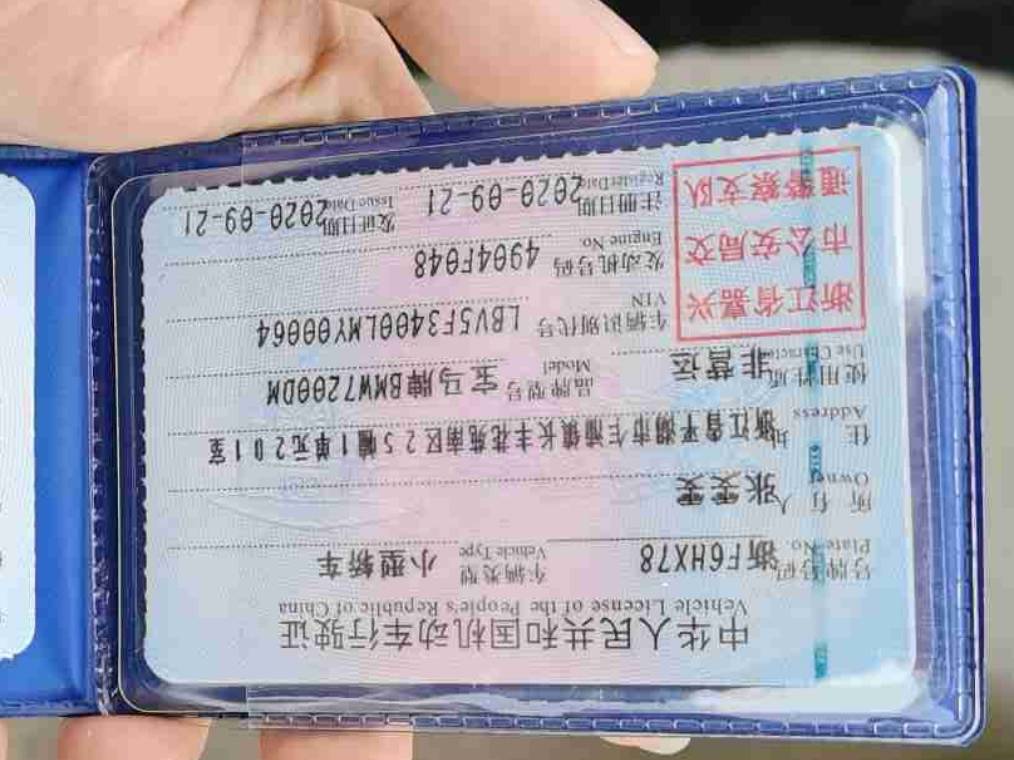 中华人民共和国机动车行驶证
Vehicle License of the People's Republic of China
号牌号码 浙F6HX78 车辆类型 小型轿车
Plate No. Vehicle Type
所有人 张雯雯
Owner
住址 浙江省平湖市乍浦镇长丰花苑南区25幢1单元201室
Address
使用性质 非营运 品牌型号 宝马牌BMW7200DM
Use Character Model
浙江省嘉兴
市公安局交
通警察支队
车辆识别代号 LBV5F3400LMY00064
VIN
发动机号码 4904F048
Engine No.
注册日期 2020-09-21 发证日期 2020-09-21
Register Date Issue Date